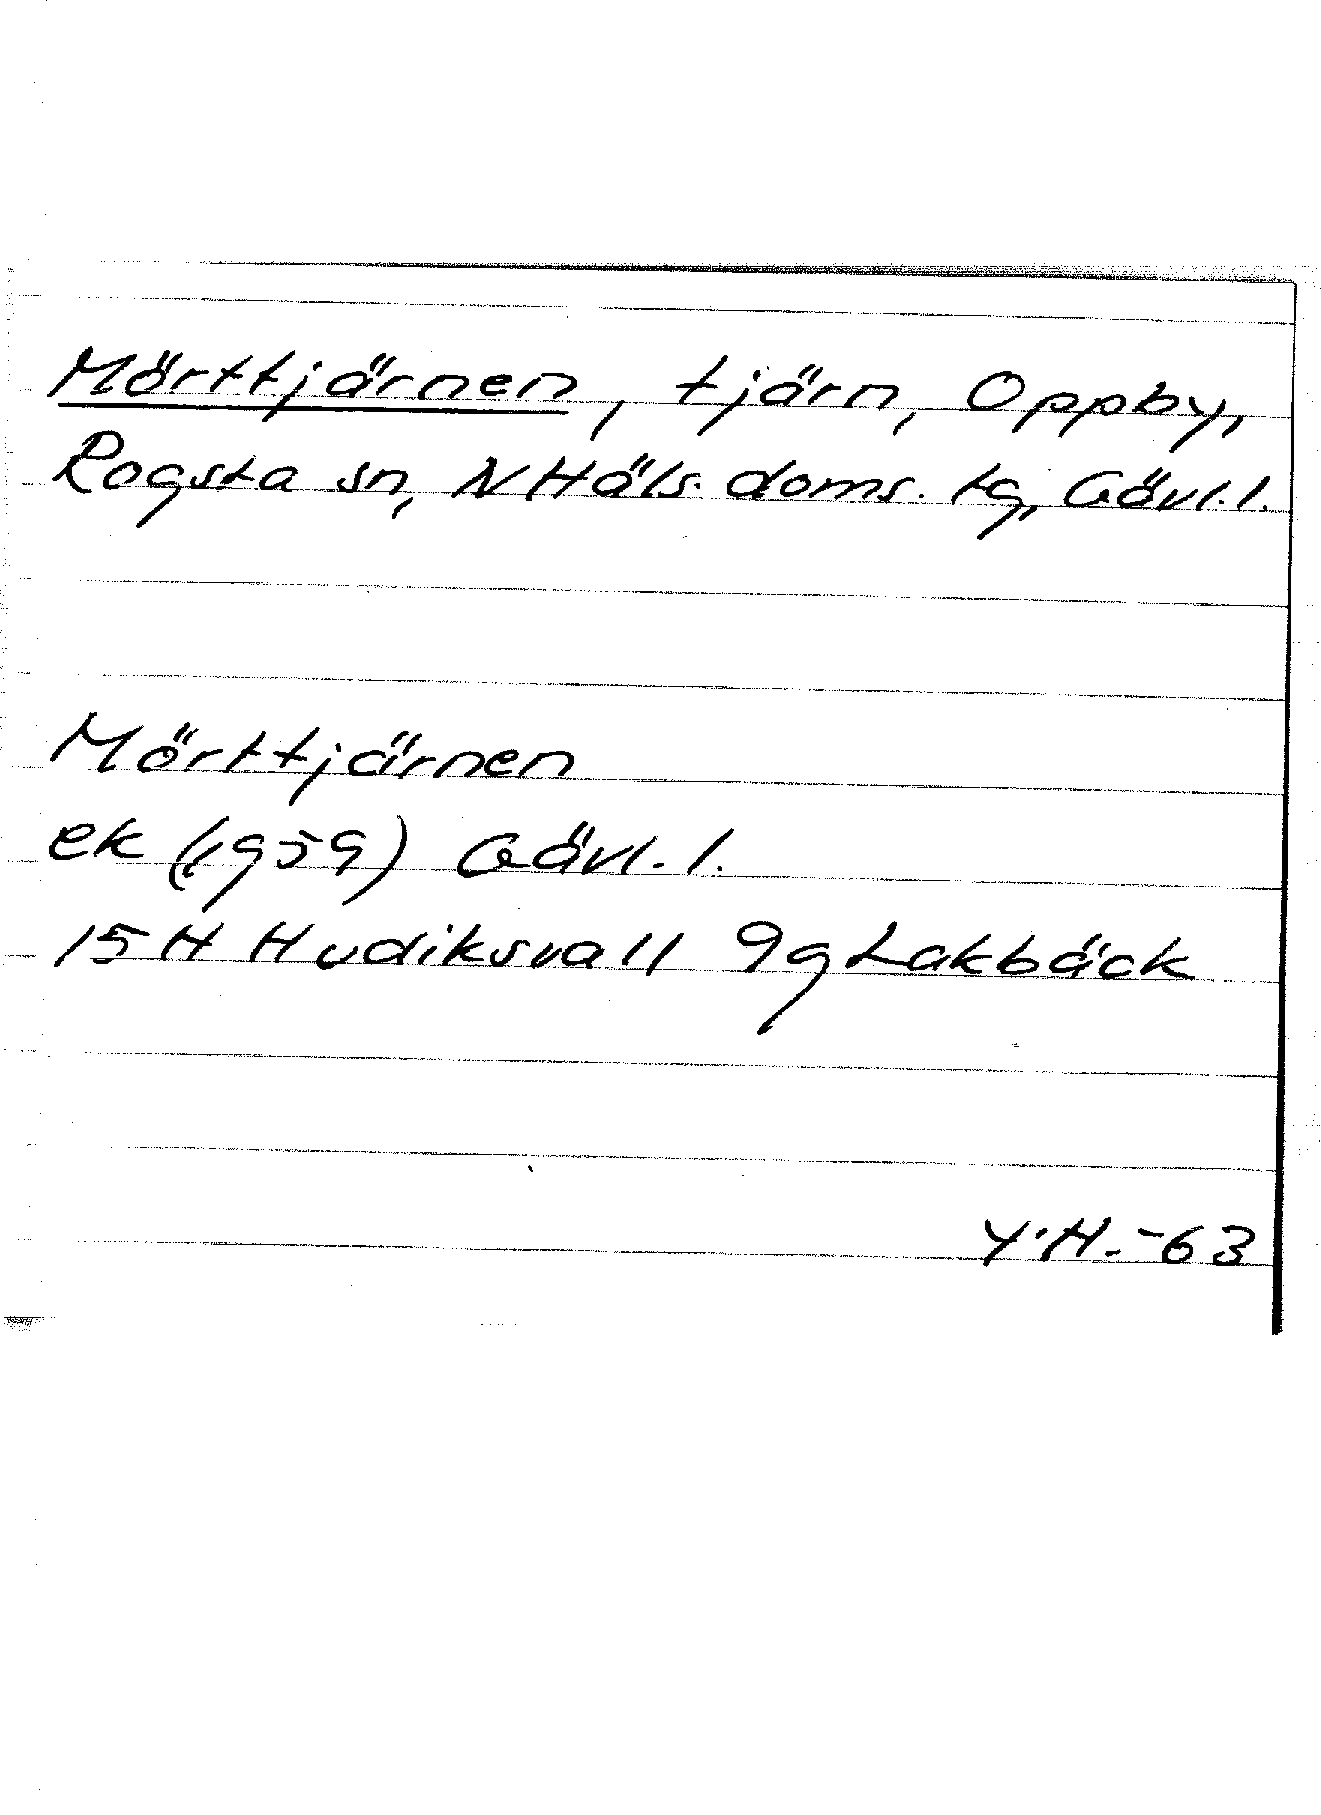 Mörttjärnen, tjärn, Oppby,
Rogsta sn, N Häls. doms. tg, Gävl. l.
Mörttjärnen
ek (1959) Gävl. l.
15 H Hudiksvall 9g Lakbäck
Y.H.-63